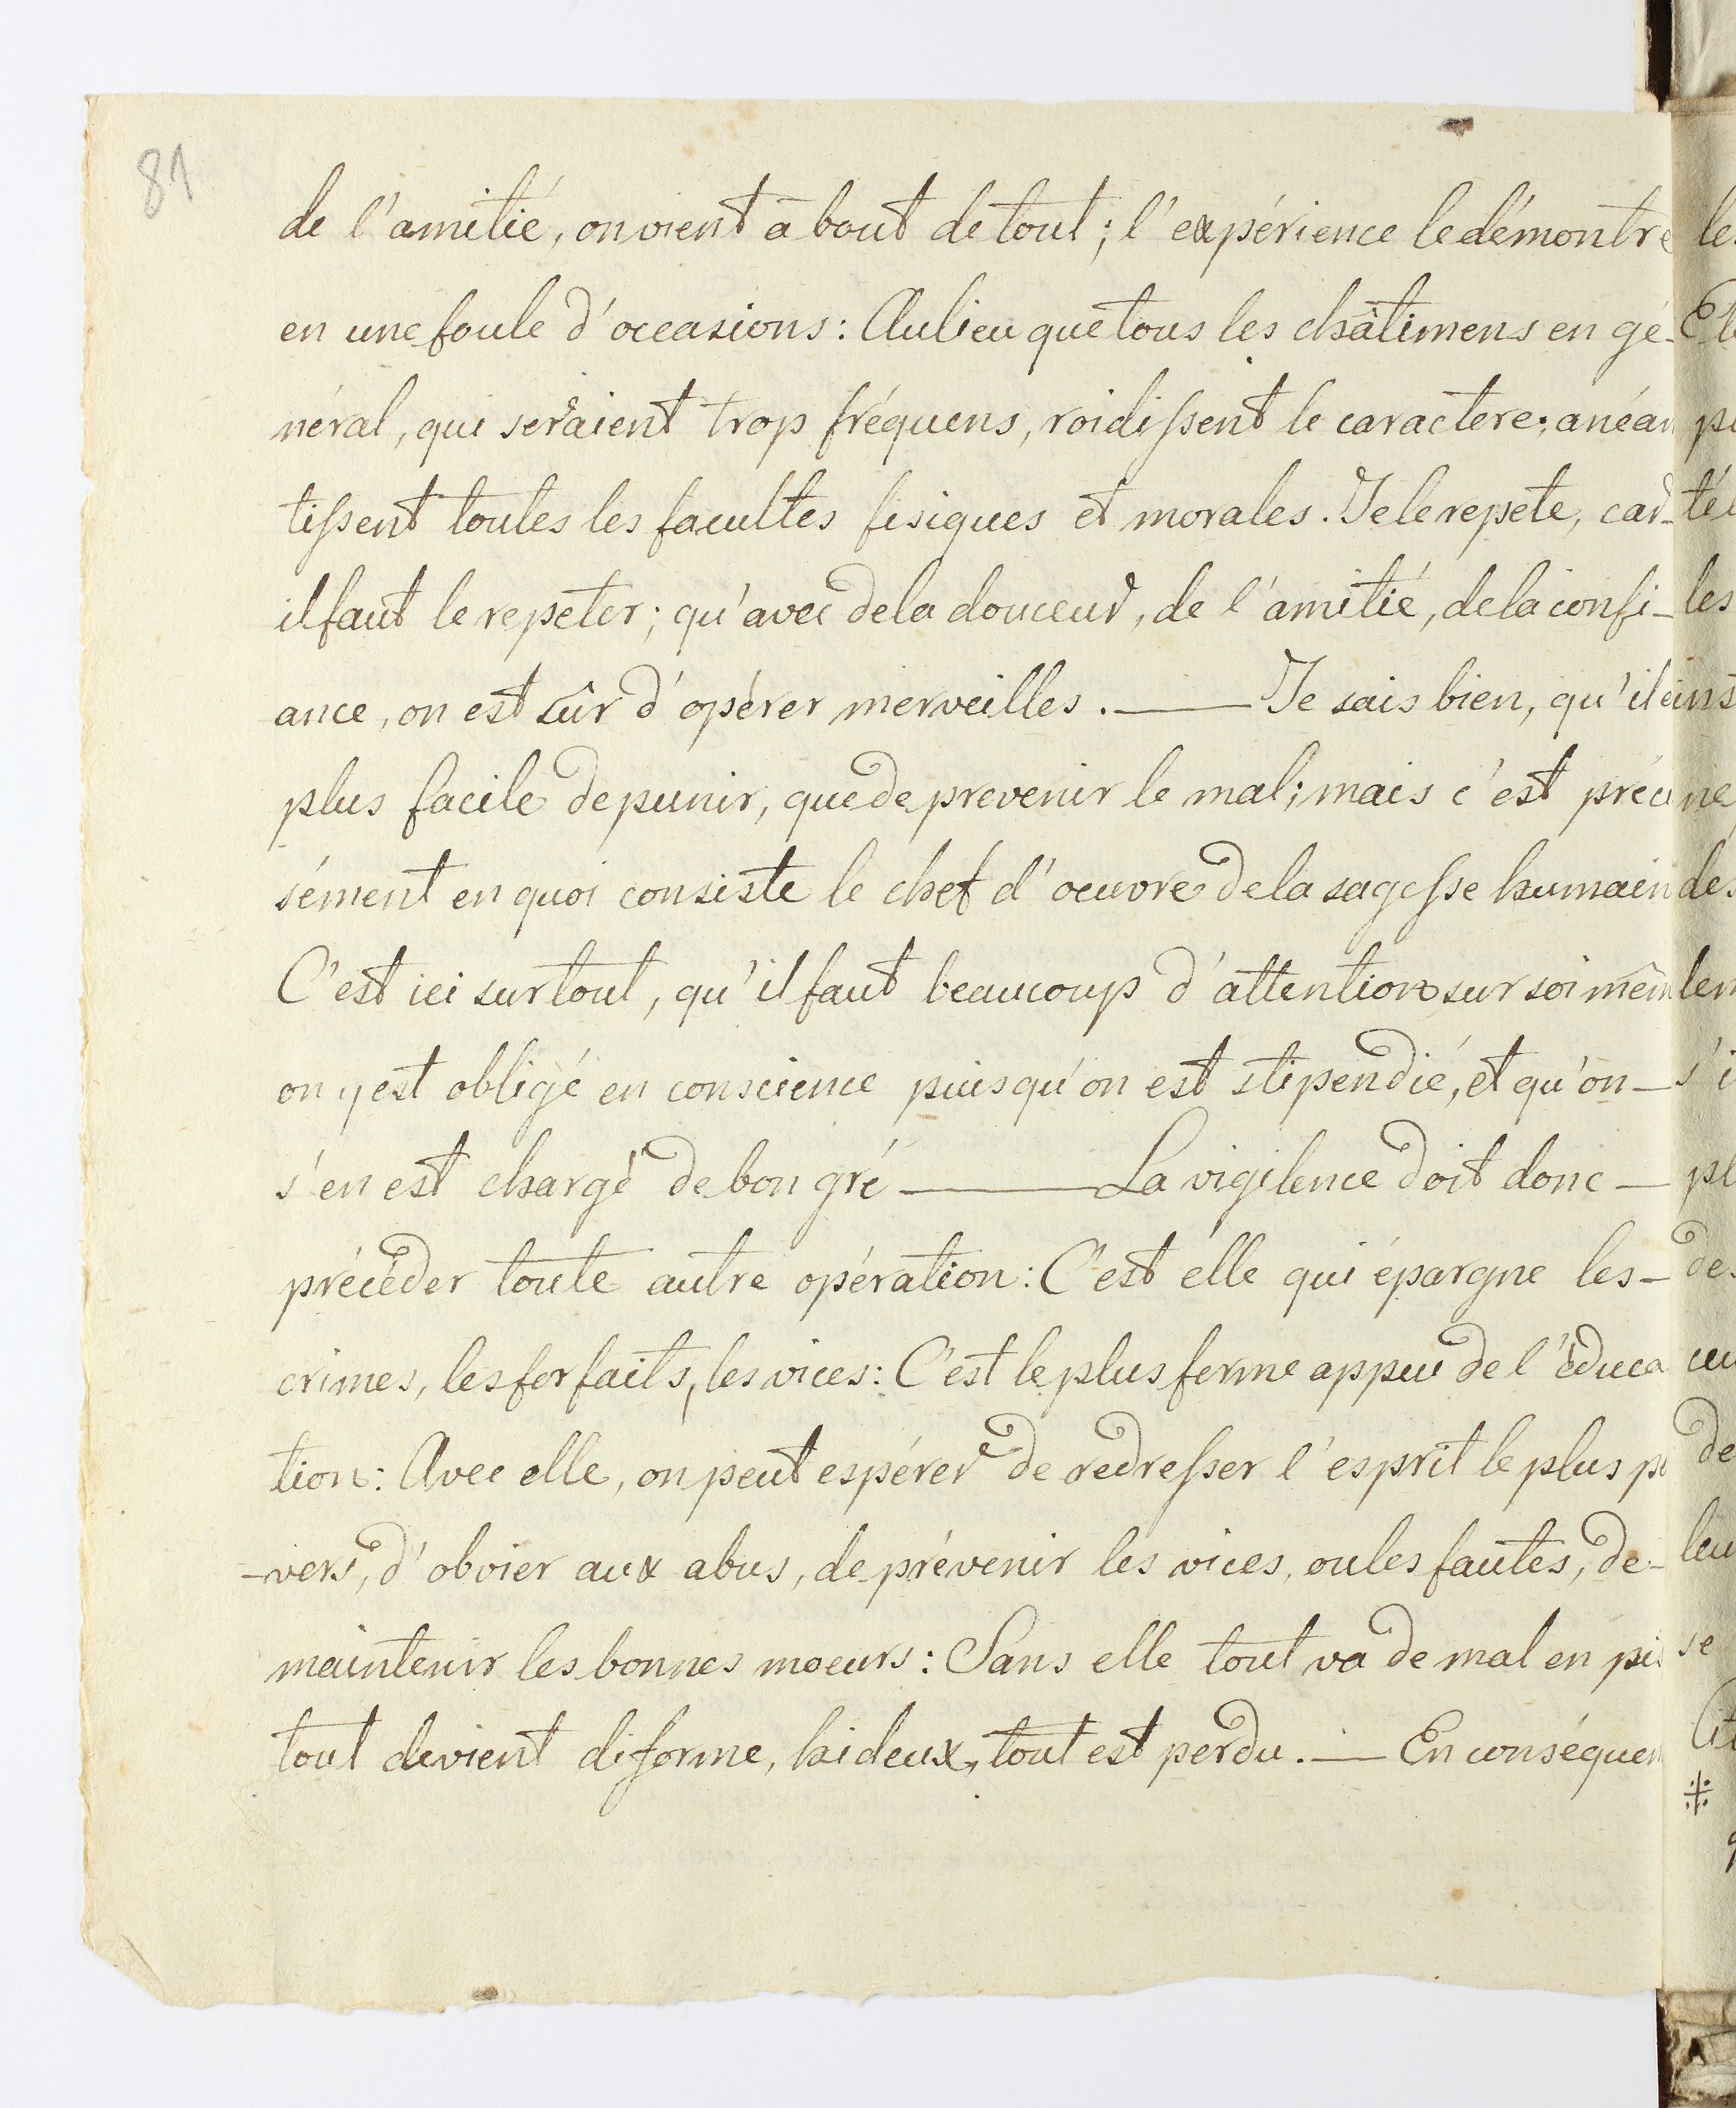 81
de l'amitié, on vient à bout de tout; l'expérience le démontre
en une foule d'occasions: Au lieu que tous les châtimens en gé-
néral, qui seraient trop fréquens, roidissent le caractere; anéan
tissent toutes les facultés fisiques et morales. Je le repete, car-
il faut le repeter; qu'avec de la douceur, de l'amitié, de la confi-
ance, on est sûr d'opérer merveilles. — Je sais bien, qu'il
plus facile de punir, que de prevenir le mal; mais c'est préci
sément en quoi consiste le chef d'oeuvre de la sagesse humain
C'est ici surtout, qu'il faut beaucoup d'attention sur soi mêm
on y est obligé en conscience puisqu'on est stipendié, et qu'on-
s'en est chargé de bon gré — La vigilence doit donc -
précéder toute autre opération: C'est elle qui épargne les-
crimes, les forfaits, les vices: C'est le plus ferme appui de l'éduca
tion: Avec elle, on peut espérer de redresser l'esprit le plus pe
-vers, d'obvier aux abus, de prévenir les vices, ou les fautes, de-
maintenir les bonnes moeurs: Sans elle tout va de mal en pis
tout devient diforme, hideux, tout est perdu. — En conséquen